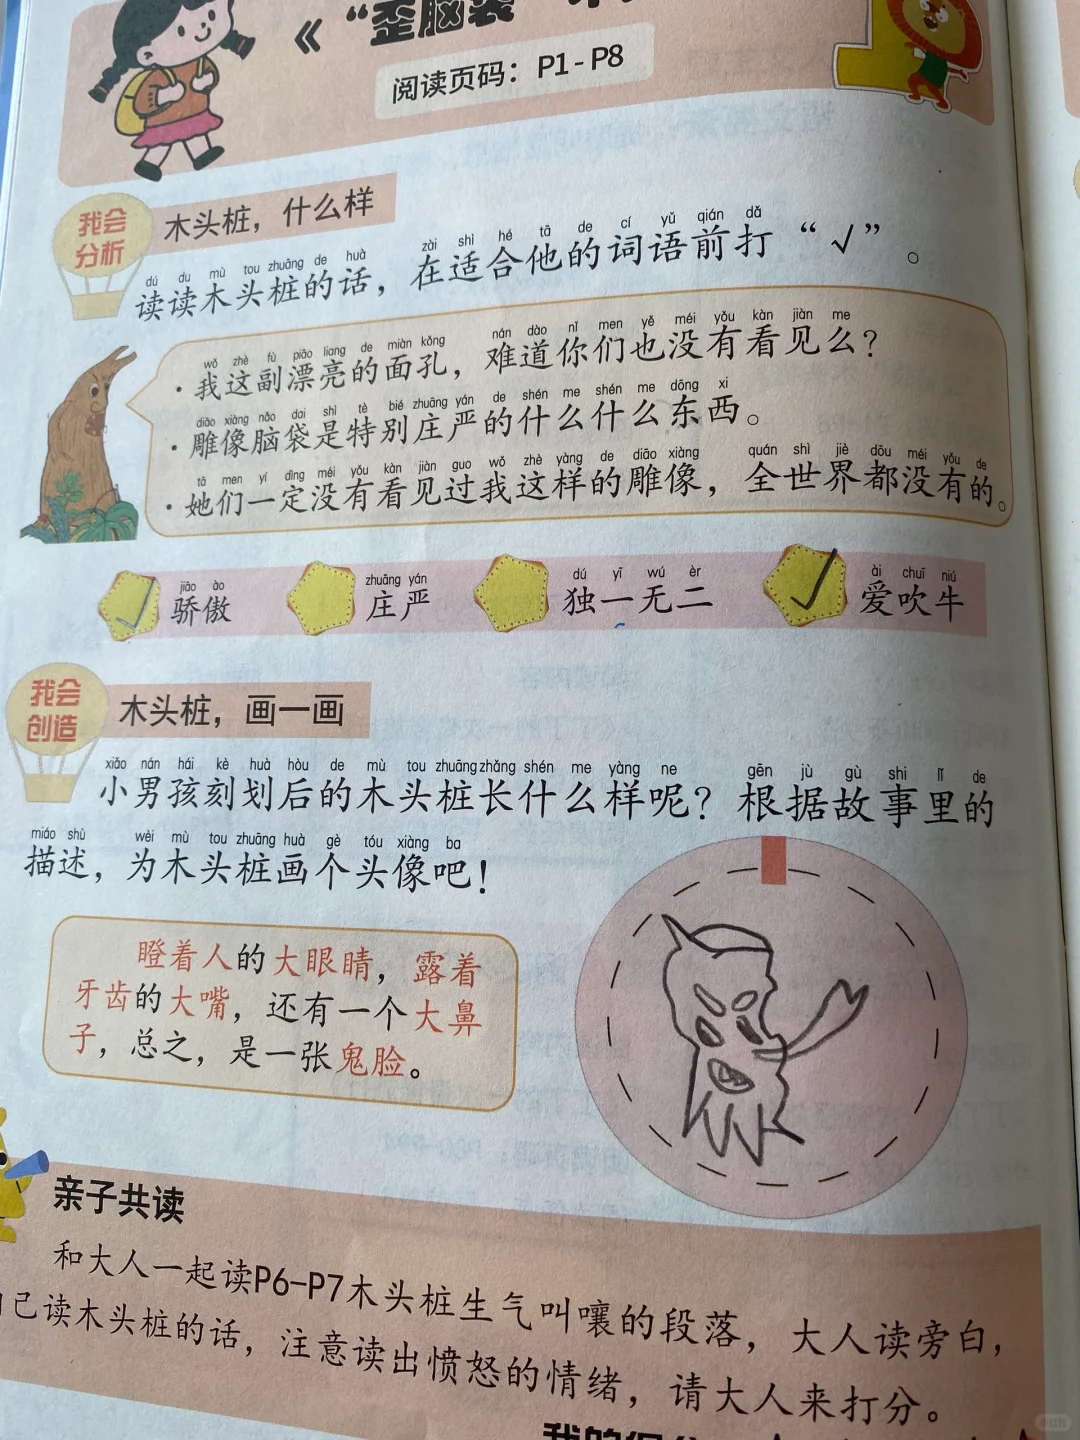 《“歪脑袋”木
阅读页码：P1-P8
我会
分析
木头桩，什么样
dú du mù tou zhuāng de huà zài shì hé tā de cí yǔ qián dǎ
读读木头桩的话，在适合他的词语前打“√”。
wǒ zhè fù piào liang de miàn kǒng nán dào nǐ men yě méi yǒu kàn jiàn me
·我这副漂亮的面孔，难道你们也没有看见么？
diāo xiàng nǎo dai shì tè bié zhuāng yán de shén me shén me dōng xi
·雕像脑袋是特别庄严的什么什么东西。
tā men yí dìng méi yǒu kàn jiàn guo wǒ zhè yàng de diāo xiàng quán shì jiè dōu méi yǒu de
·她们一定没有看见过我这样的雕像，全世界都没有的。
jiāo ào zhuāng yán dú yī wú èr ài chuī niú
骄傲 庄严 独一无二 爱吹牛
我会
创造
木头桩，画一画
xiǎo nán hái kè huà hòu de mù tou zhuāng zhǎng shén me yàng ne gēn jù gù shi lǐ de
小男孩刻划后的木头桩长什么样呢？根据故事里的
miáo shù wèi mù tou zhuāng huà gè tóu xiàng ba
描述，为木头桩画个头像吧！
瞪着人的大眼睛，露着
牙齿的大嘴，还有一个大鼻
子，总之，是一张鬼脸。
亲子共读
和大人一起读P6-P7木头桩生气叫嚷的段落，大人读旁白，
己读木头桩的话，注意读出愤怒的情绪，请大人来打分。
小红书